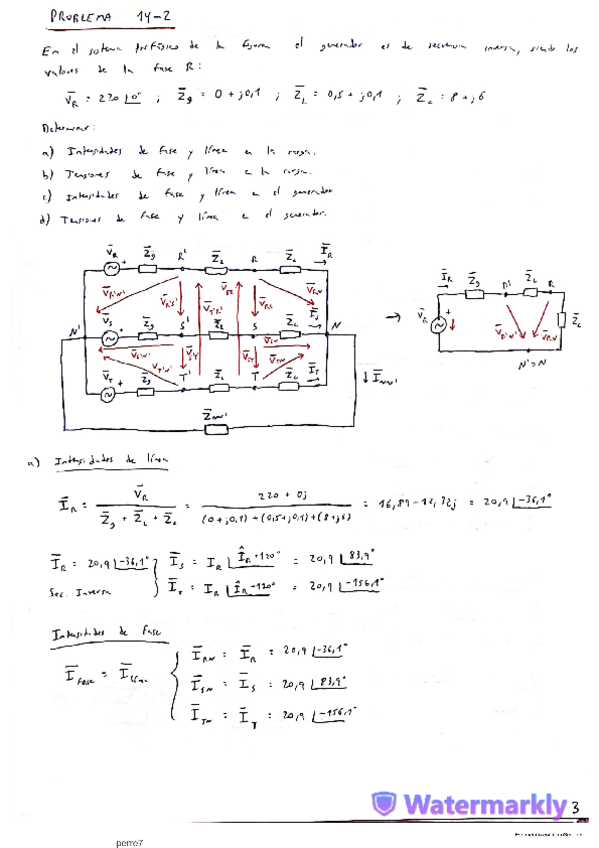 PROBLEMA 14-2
En el sistema trifásico de la figura el generador es de secuencia inversa, siendo los
valores de la fase R:
V̅R = 220 |0° ; Z̅g = 0 + j0,1 ; Z̅L = 0,5 + j0,1 ; Z̅c = 8 + j6
Determinar:
a) Intensidades de fase y línea en la carga.
b) Tensiones de fase y línea en la carga.
c) Intensidades de fase y línea en el generador
d) Tensiones de fase y línea en el generador.
V̅R + Z̅g R' Z̅L R Z̅c I̅R
V̅R'N' V̅R'S' V̅T'R' V̅TR V̅RS V̅RN
N' V̅S + Z̅g S' Z̅L S Z̅c N
V̅S'N' V̅T'N' V̅S'T' V̅ST V̅SN V̅TN
V̅T + Z̅g T' Z̅L T Z̅c I̅T
Z̅NN' ↓ I̅NN'
→
I̅R Z̅g R' Z̅L R
V̅R + V̅R'N' V̅RN Z̅c
N'=N
a) Intensidades de línea
I̅R = V̅R / (Z̅g + Z̅L + Z̅c) = 220 + 0j / ((0+j0,1)+(0,5+j0,1)+(8+j6)) = 16,89-12,32j = 20,9 |-36,1°
I̅R = 20,9 |-36,1° } I̅S = IR |ÎR+120° = 20,9 |83,9°
Sec. Inversa } I̅T = IR |ÎR-120° = 20,9 |-156,1°
Intensidades de fase
I̅fase = I̅línea
I̅RN = I̅R = 20,9 |-36,1°
I̅SN = I̅S = 20,9 |83,9°
I̅TN = I̅T = 20,9 |-156,1°
Watermarkly
3
perre7